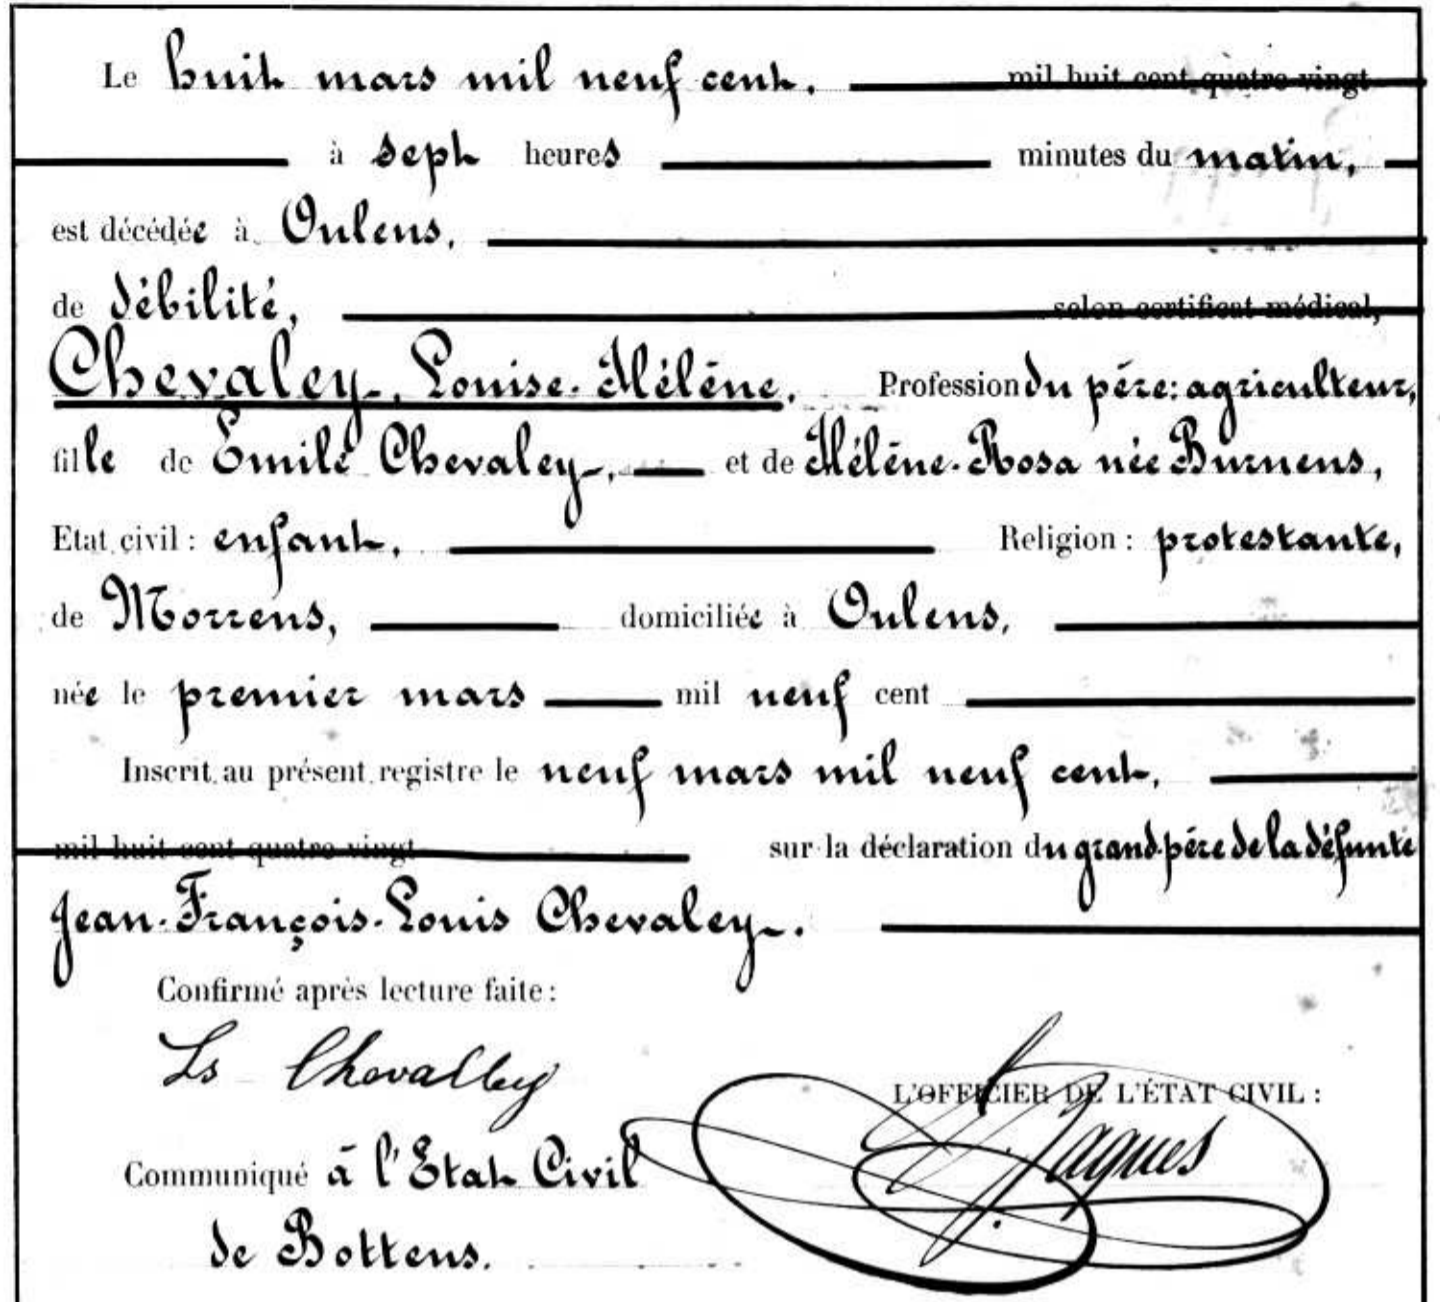 Le huit mars mil neuf cent, mil huit cent quatre vingt
à sept heures minutes du matin,
est décédée à Oulens,
de débilité, selon certificat médical,
Chevaley, Louise-Hélène, Profession du père: agriculteur,
fille de Emile Chevaley, et de Hélène-Rosa née Burnens,
Etat civil : enfant, Religion : protestante,
de Morrens, domiciliée à Oulens,
née le premier mars mil neuf cent
Inscrit au présent registre le neuf mars mil neuf cent,
mil huit cent quatre vingt sur la déclaration du grand-père de la défunte
Jean-François-Louis Chevaley.
Confirmé après lecture faite :
Ls Chevalley
L'OFFICIER DE L'ÉTAT CIVIL :
Jaques
Communiqué à l'Etat Civil
de Bottens.